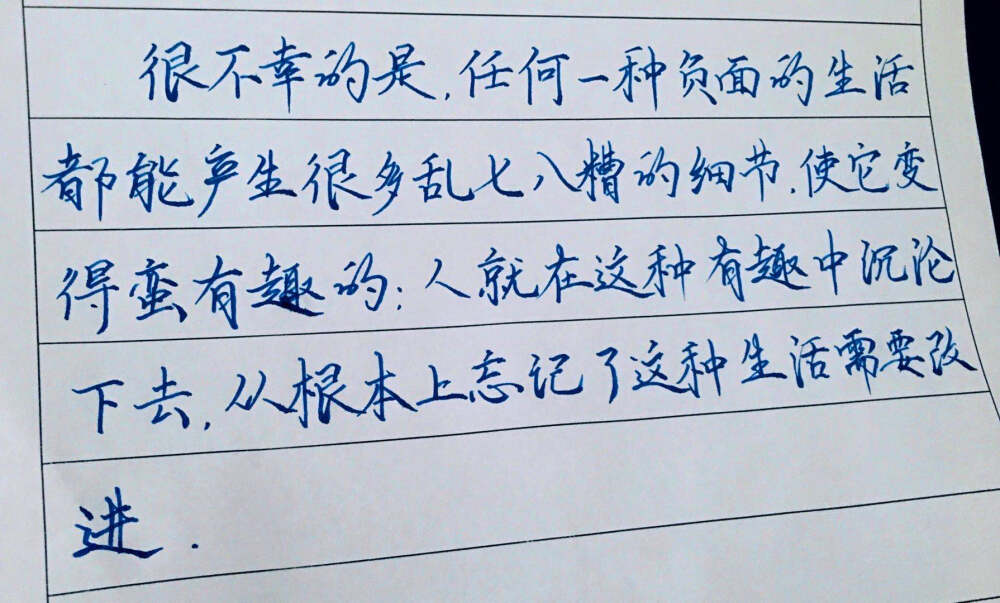 很不幸的是,任何一种负面的生活
都能产生很多乱七八糟的细节,使它变
得蛮有趣的;人就在这种有趣中沉沦
下去,从根本上忘记了这种生活需要改
进.